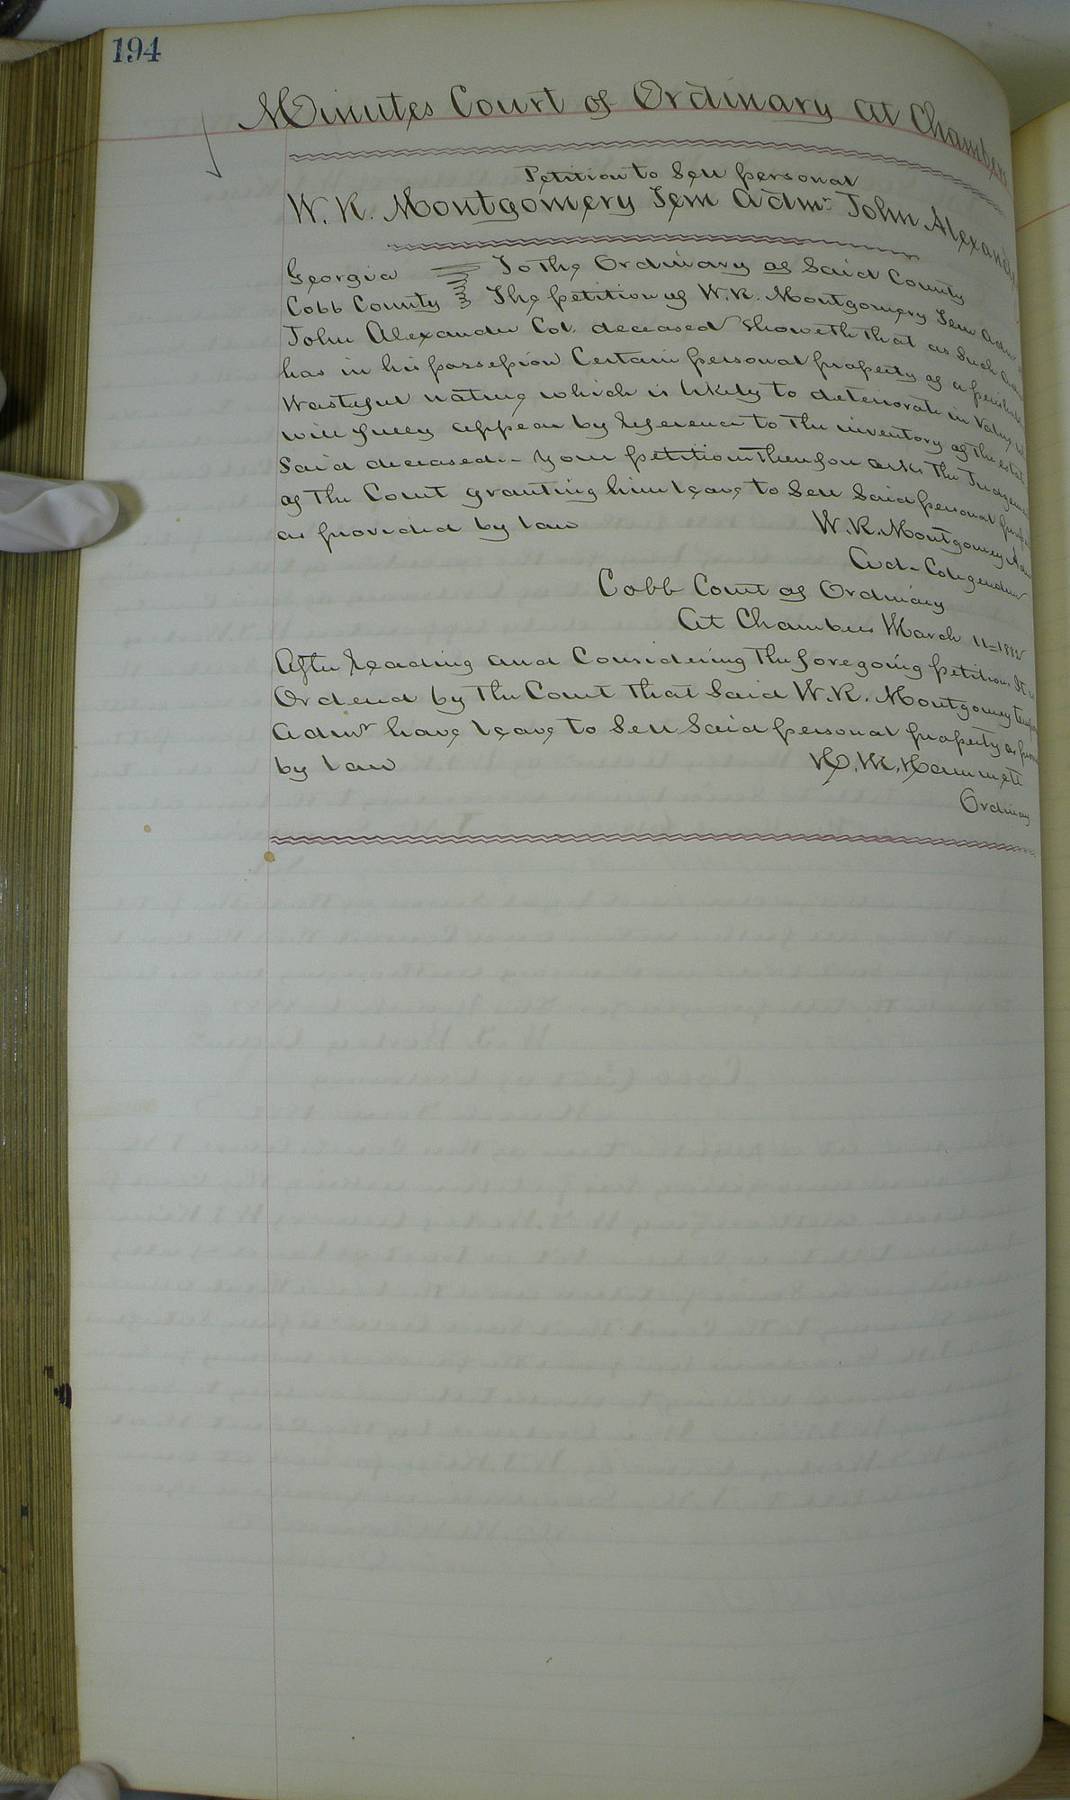 194
Minutes Court of Ordinary at Chambers
Petition to Sell personal
W. R. Montgomery Tem Admr John Alexander
Georgia To The Ordinary of Said County
Cobb County The petition of W. R. Montgomery Tem Admr
John Alexander Col. deceased Showeth that as Such
has in his possession Certain personal property of a perishable
Wasteful nature which is likely to deteriorate in Value
will fully appear by Reference to The inventory of The estate
Said deceased - Your petition Therefore asks The Judgement
of The Court granting him leave to Sell Said personal
as provided by law W. R. Montgomery
Ad- Coligendum
Cobb Court of Ordinary
At Chambers March 11=1882
After Reading and Considering The foregoing petition. It is
Ordered by The Court That Said W. R. Montgomery
Admr have leave to Sell Said personal property as
by law H. M. Hammett
Ordinary